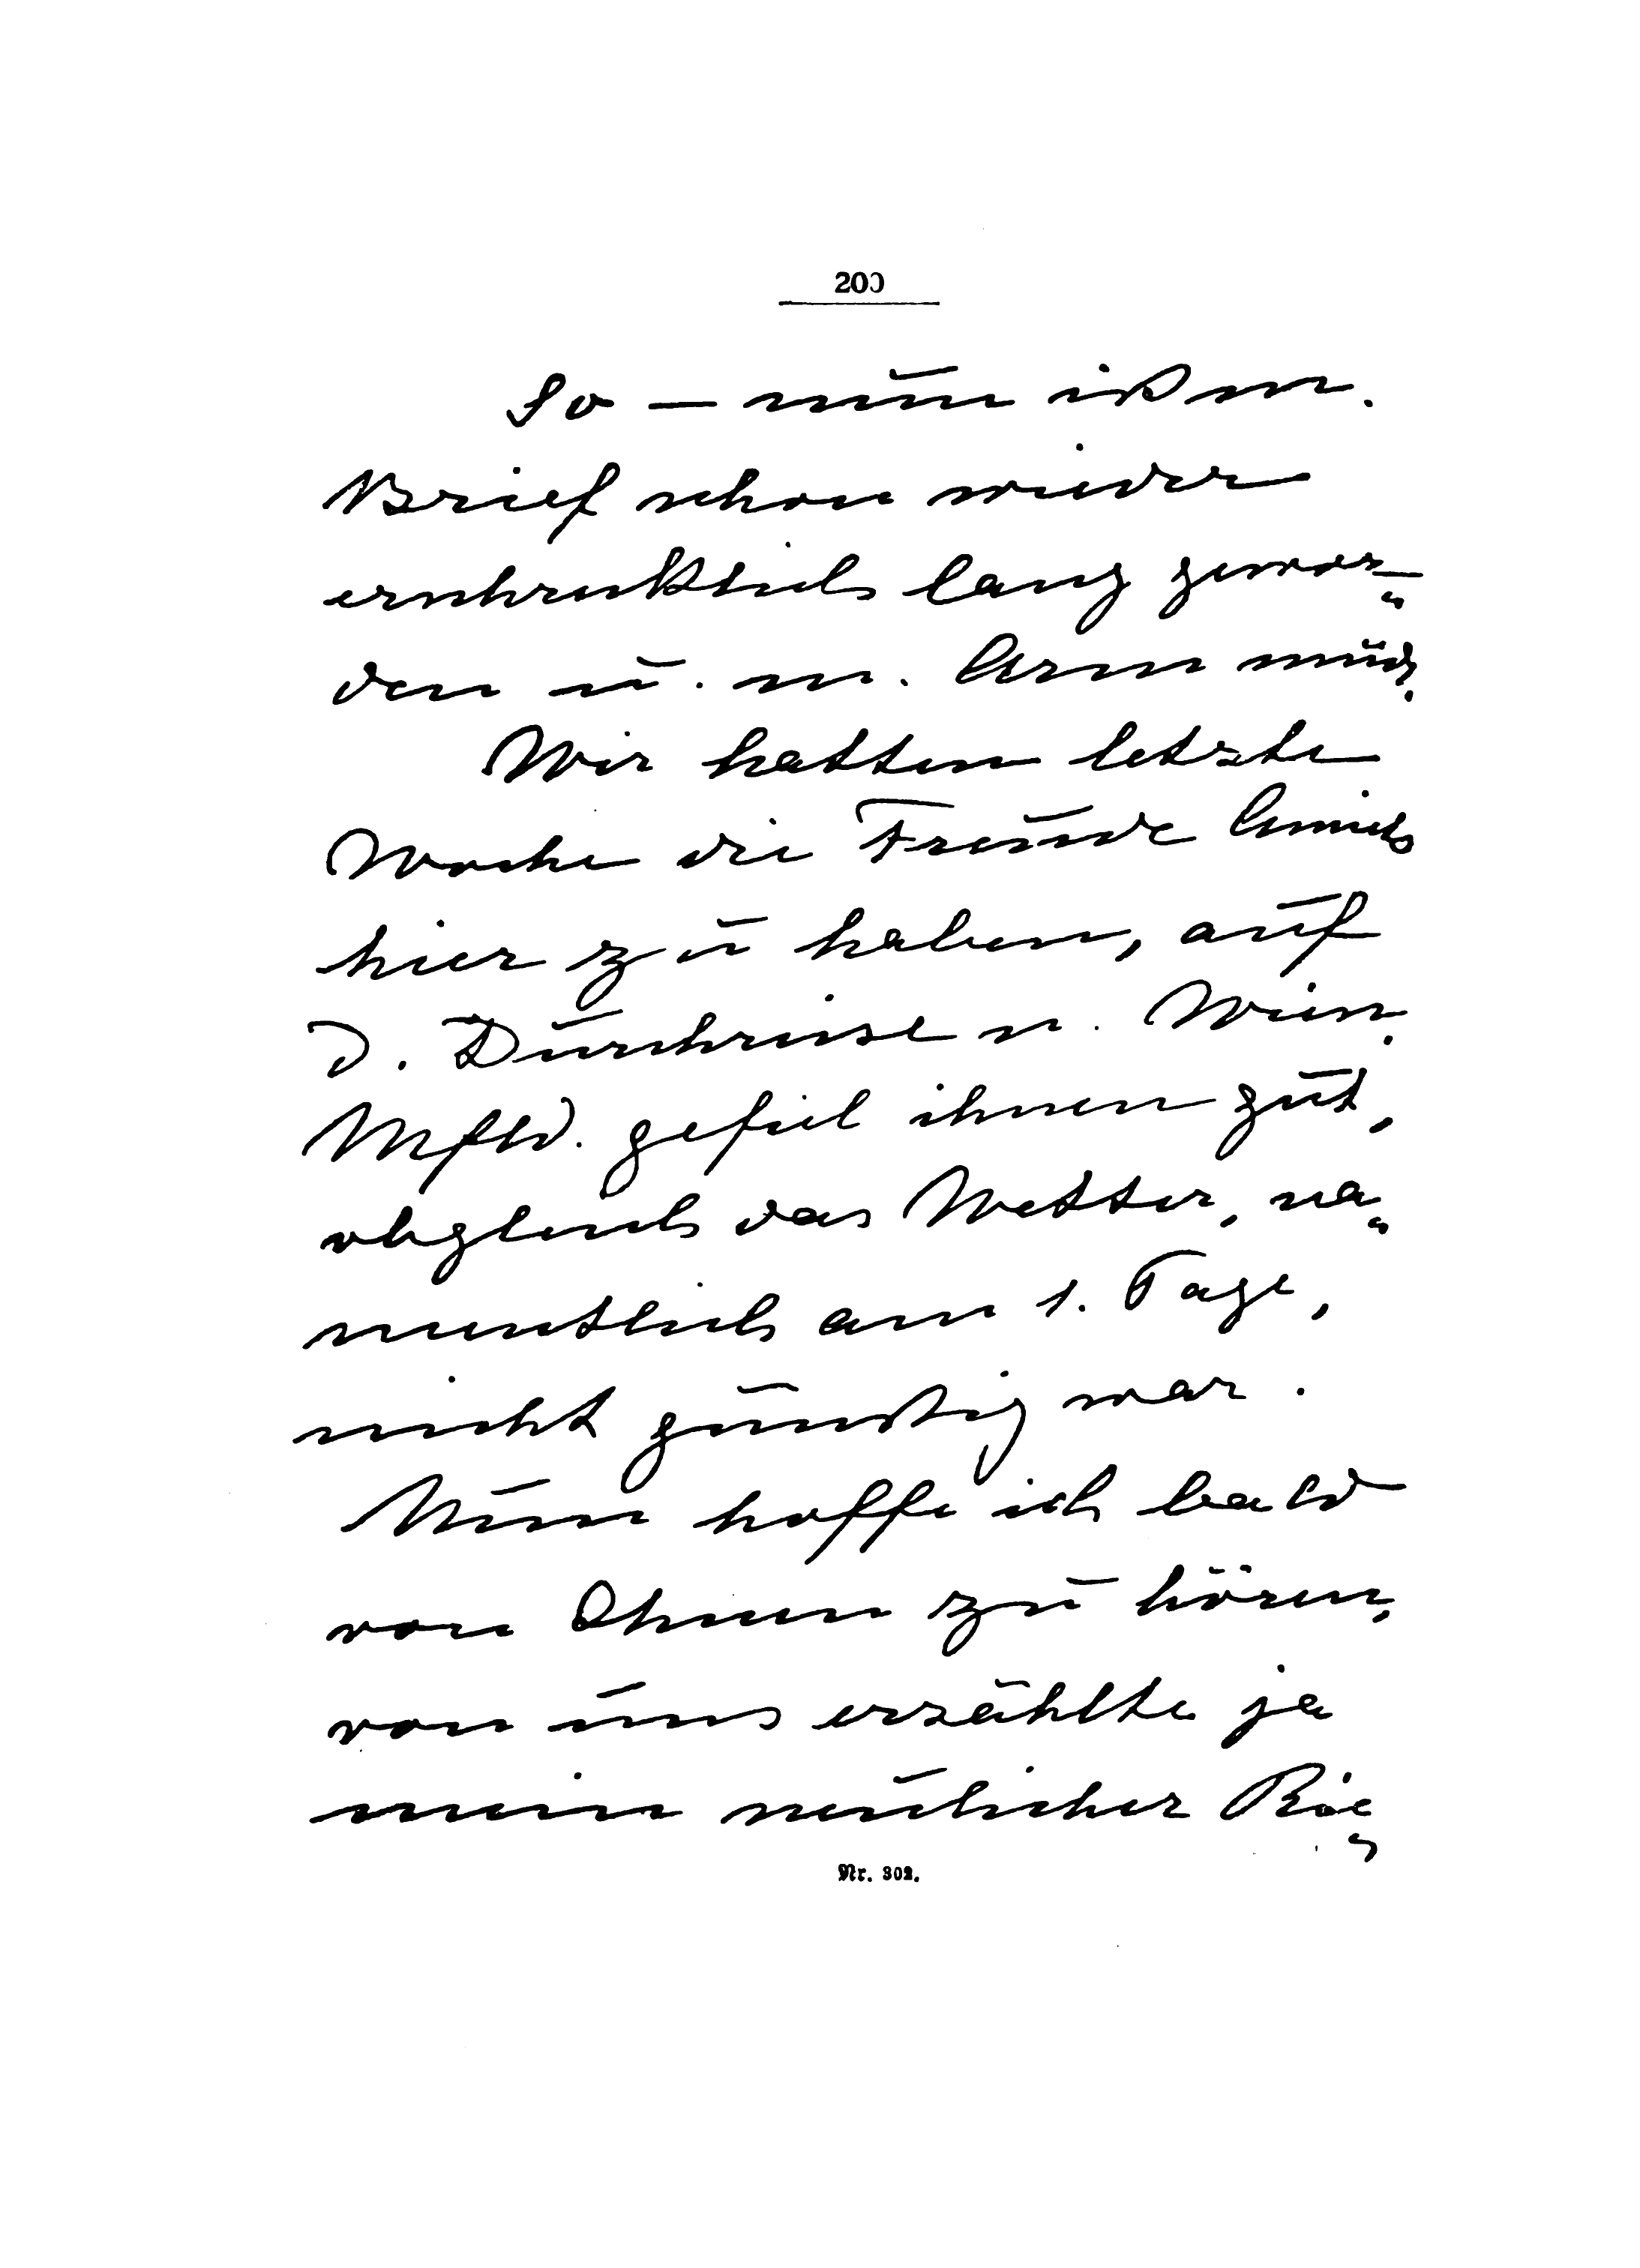 200
So — nun ist m.
Brief schon wieder
erschrecklich lang gewor-
den u. m. Arm müd.
Wir hatten letzte
Woche die Freunde
hier zu haben, auf
d. Durchreise n. Wien.
gefiel ihnen gut,
obgleich das Wetter, na-
mentlich am 1. Tage,
nicht günstig war.
Nun hoffe ich bald
von Ihnen zu hören,
von uns erzählte ja
mein neulicher
Nr. 302.